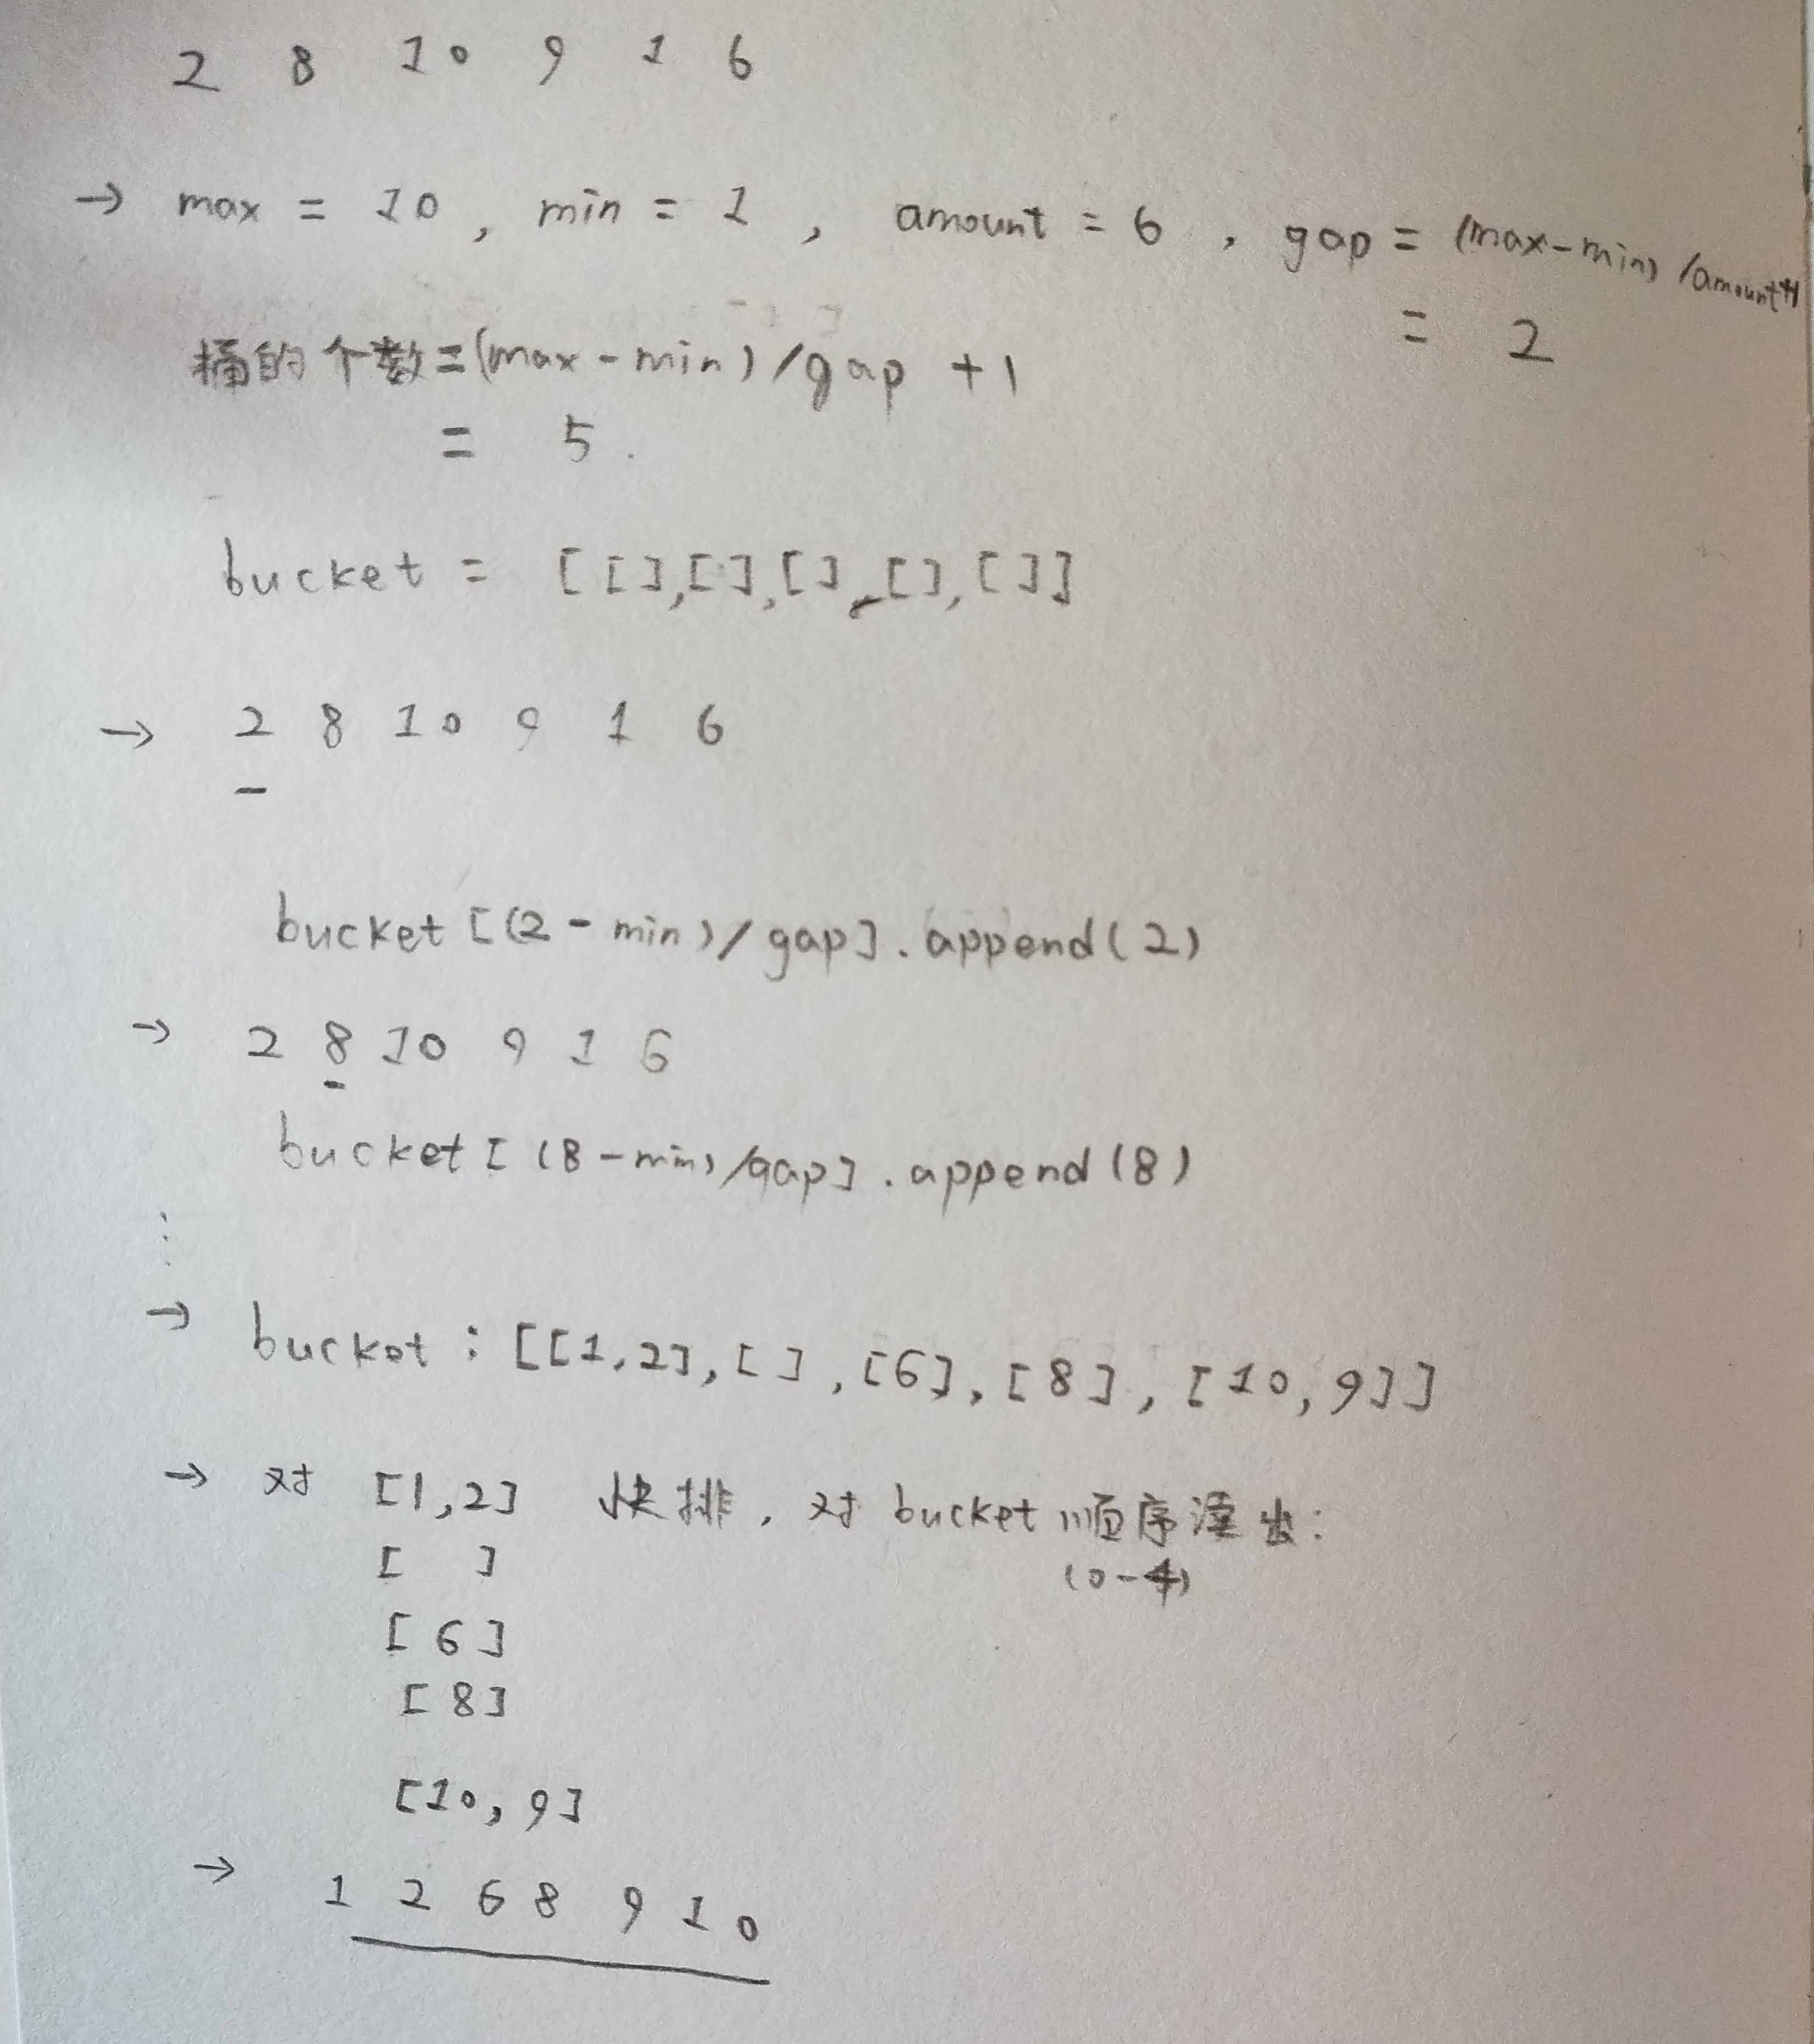 2 8 10 9 1 6
→ max = 10 , min = 1 , amount = 6 , gap = (max-min)/amount+1
= 2
桶的个数=(max-min)/gap +1
= 5.
bucket = [[],[],[],[],[]]
→ 2 8 10 9 1 6
bucket[(2-min)/gap].append(2)
→ 2 8 10 9 1 6
bucket[(8-min)/gap].append(8)
⋮
→ bucket : [[1,2],[],[6],[8],[10,9]]
→ 对 [1,2] 快排, 对 bucket 顺序 出:
[ ] (0-4)
[6]
[8]
[10,9]
→ 1 2 6 8 9 10